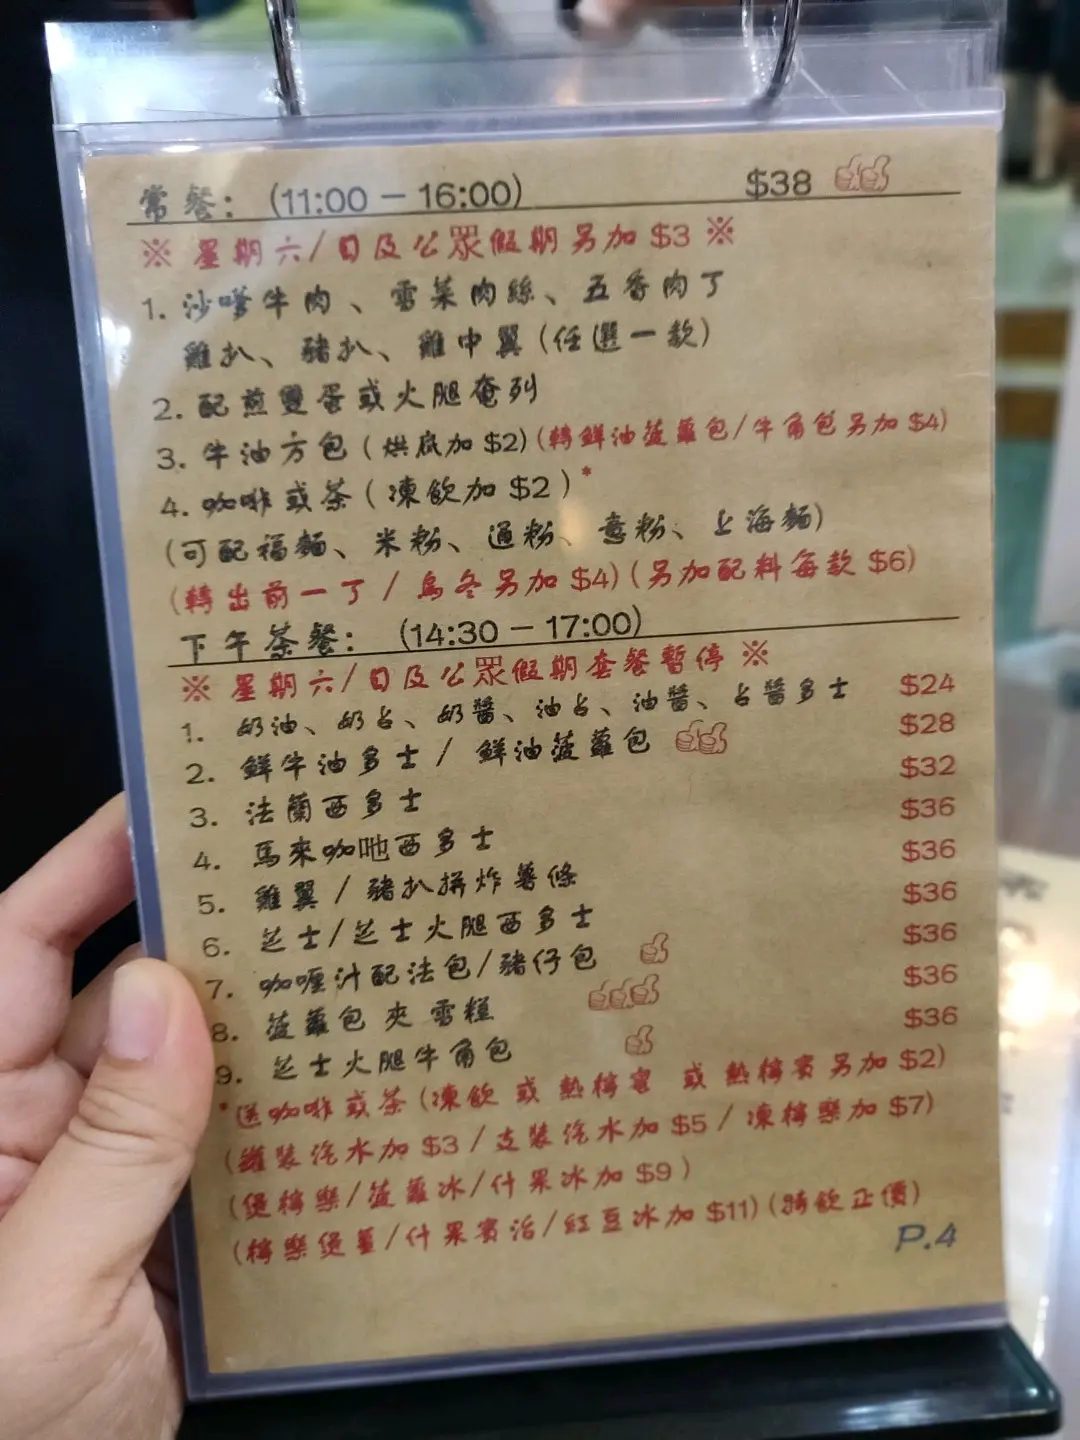 常餐: (11:00 – 16:00) $38
※ 星期六/日及公眾假期另加 $3 ※
1. 沙嗲牛肉、雪菜肉絲、五香肉丁
雞扒、豬扒、雞中翼 (任選一款)
2. 配煎雙蛋或火腿奄列
3. 牛油方包 (烘底加 $2) (轉鮮油菠蘿包/牛角包另加 $4)
4. 咖啡或茶 (凍飲加 $2) *
(可配福麵、米粉、通粉、意粉、上海麵)
(轉出前一丁 / 烏冬另加 $4) (另加配料每款 $6)
下午茶餐: (14:30 – 17:00)
※ 星期六/日及公眾假期套餐暫停 ※
1. 奶油、奶占、奶醬、油占、油醬、占醬多士 $24
2. 鮮牛油多士 / 鮮油菠蘿包 $28
3. 法蘭西多士 $32
4. 馬來咖吔西多士 $36
5. 雞翼 / 豬扒拼炸薯條 $36
6. 芝士/芝士火腿西多士 $36
7. 咖喱汁配法包/豬仔包 $36
8. 菠蘿包夾雪糕 $36
9. 芝士火腿牛角包 $36
*送咖啡或茶 (凍飲 或 熱檸蜜 或 熱檸賓另加 $2)
(罐裝汽水加 $3 / 支裝汽水加 $5 / 凍檸樂加 $7)
(煲檸樂/菠蘿冰/什果冰加 $9)
(檸樂煲薑/什果賓治/紅豆冰加 $11) (特飲正價)
P.4